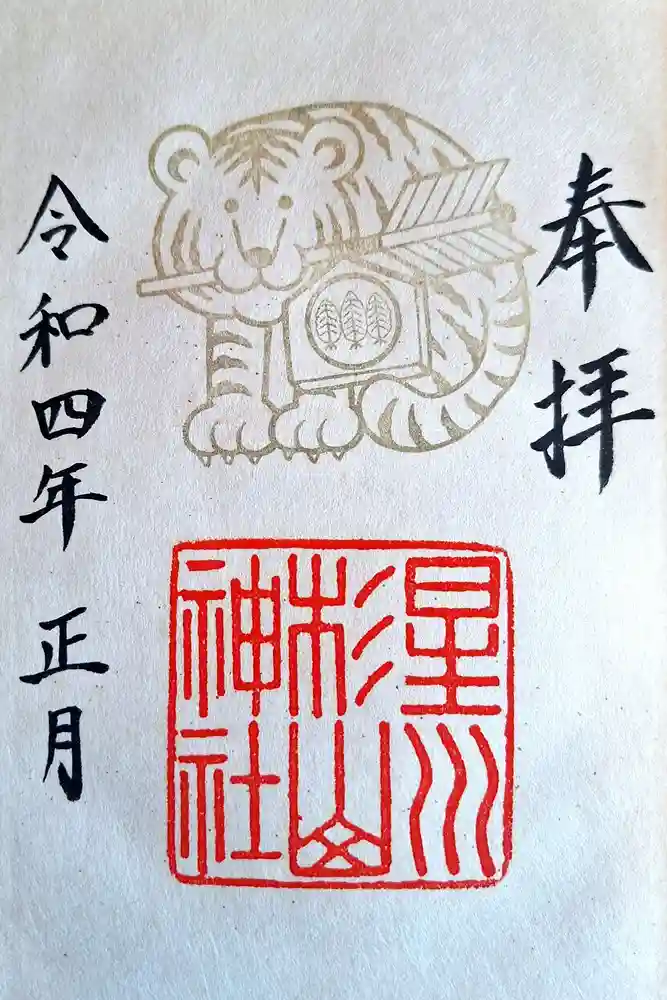 奉拝
星川
杉山
神社
令和四年 正月